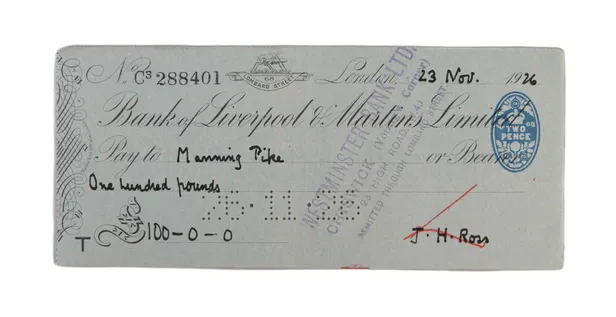 No. C³ 288401 68 LOMBARD STREET London, 23 Nov. 1926
Bank of Liverpool & Martins Limited
Pay to Manning Pike or Bearer
One hundred pounds
£100-0-0
J. H. Ross
T
TWO PENCE
WESTMINSTER BANK LTD.
CHISWICK
HIGH ROAD, W.4
LOMBARD STREET